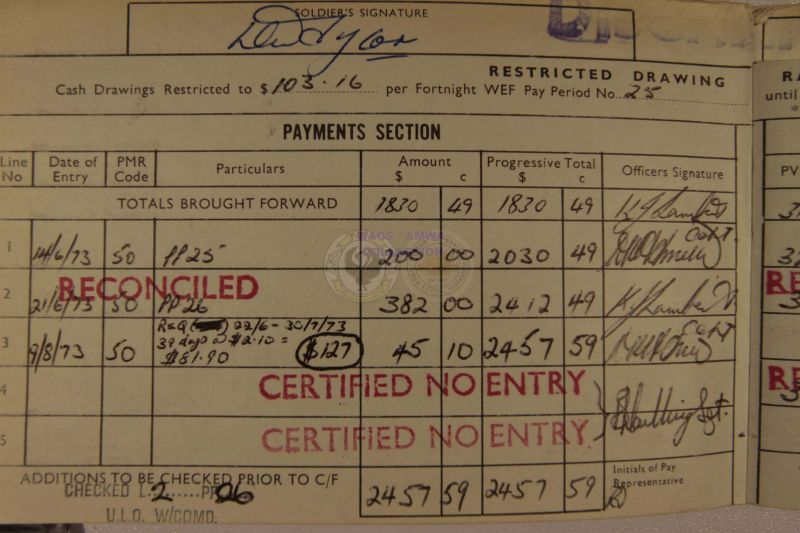 SOLDIER'S SIGNATURE
RESTRICTED DRAWING
Cash Drawings Restricted to $ 103.16 per Fortnight WEF Pay Period No. 25
PAYMENTS SECTION
Line No Date of Entry PMR Code Particulars Amount $ c Progressive Total $ c Officers Signature
TOTALS BROUGHT FORWARD 1830 49 1830 49
1 14/6/73 50 PP25 200 00 2030 49
RECONCILED
2 21/6/73 50 PP26 382 00 2412 49
R&Q 22/6 - 30/7/73
3 9/8/73 50 39 days @ $2.10 = $81.90 $127 45 10 2457 59
4 CERTIFIED NO ENTRY
5 CERTIFIED NO ENTRY
ADDITIONS TO BE CHECKED PRIOR TO C/F 2457 59 2457 59 Initials of Pay Representative
CHECKED L 2 PP 26
U.L.O. W/COMD.